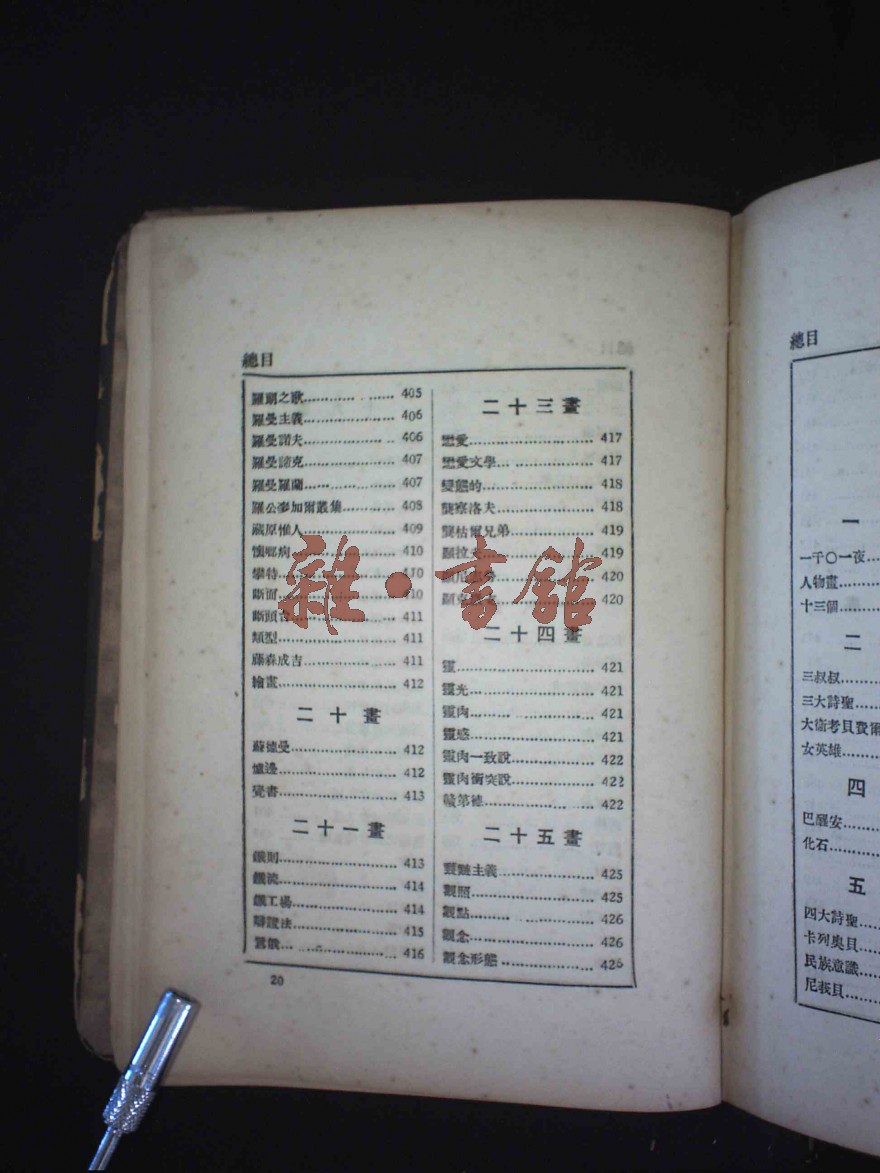 總目
羅朗之歌 405
羅曼主義 406
羅曼諾夫 406
羅曼諦克 407
羅曼羅蘭 407
羅公麥加爾叢集 408
藏原惟人 409
懷鄉病 410
攀特 410
斷面 410
斷頭台 411
類型 411
藤森成吉 411
繪畫 412
二十畫
蘇德曼 412
爐邊 412
覺書 413
二十一畫
鐵則 413
鐵流 414
鐵工場 414
辯證法 415
囂俄 416
二十三畫
戀愛 417
戀愛文學 417
變態的 418
龔察洛夫 418
龔枯爾兄弟 419
顯拉夫 419
420
420
二十四畫
靈 421
靈光 421
靈肉 421
靈感 421
靈肉一致說 422
靈肉衝突說 422
贛第德 422
二十五畫
主義 425
觀照 425
觀點 426
觀念 426
觀念形態 426
20
雜·書館
總目
一
一千〇一夜
人物畫
十三個
二
三叔叔
三大詩聖
大衛考貝費爾
女英雄
四
巴醒安
化石
五
四大詩聖
卡列奧貝
民族意識
尼莪貝